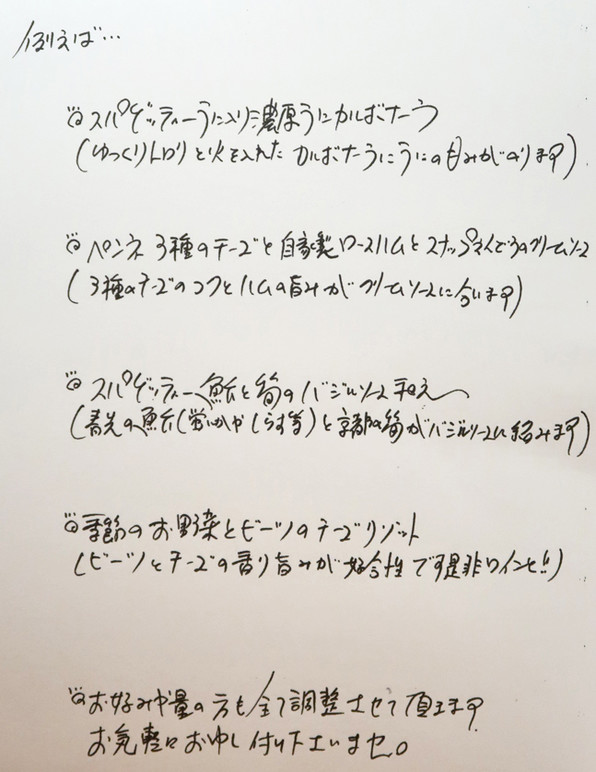 例えば…
スパゲッティーうに入り濃厚うにカルボナーラ
(ゆっくりトロリと火を入れた カルボナーラにうにのもみがのります)
ペンネ 3種のチーズと自家製ロースハムとスナップえんどうのクリームソース
(3種のチーズのコクとハムの旨みがクリームソースに合います)
スパゲッティー 魚介と筍のバジルソース和え
(春先の魚介(蛍いかやしらす等)と京都の筍がバジルソースに絡みます)
季節のお野菜とビーツのチーズリゾット
(ビーツとチーズの香り旨みが好合性です是非ワインと!!)
お好みや量の方も全て調整させて頂きます
お気軽にお申し付け下さいませ。